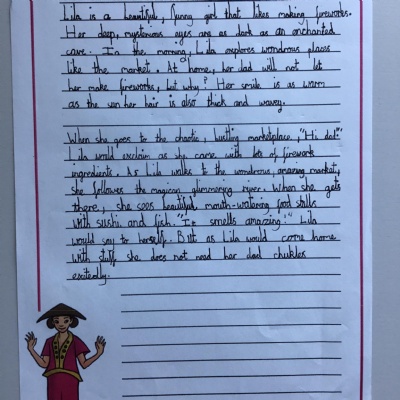 Lila is a beautiful, funny girl that likes making fireworks.
Her deep, mysterious eyes are as dark as an enchanted
cave. In the morning, Lila explores wondrous places
like the market. At home, her dad will not let
her make fireworks, but why? Her smile is as warm
as the sun her hair is also thick and wavey.
When she goes to the chaotic, bustling marketplace, "Hi dad"
Lila would exclaim as she came with lots of firework
ingredients. As Lila walks to the wonderous, amazing market,
she follows the magical glimmering river. When she gets
there, she sees beautiful, mouth-watering food stalls
with sushi and fish. "It smells amazing" Lila
would say to herself. But as Lila would come home
with stuff she does not need her dad chukles
excitedly.